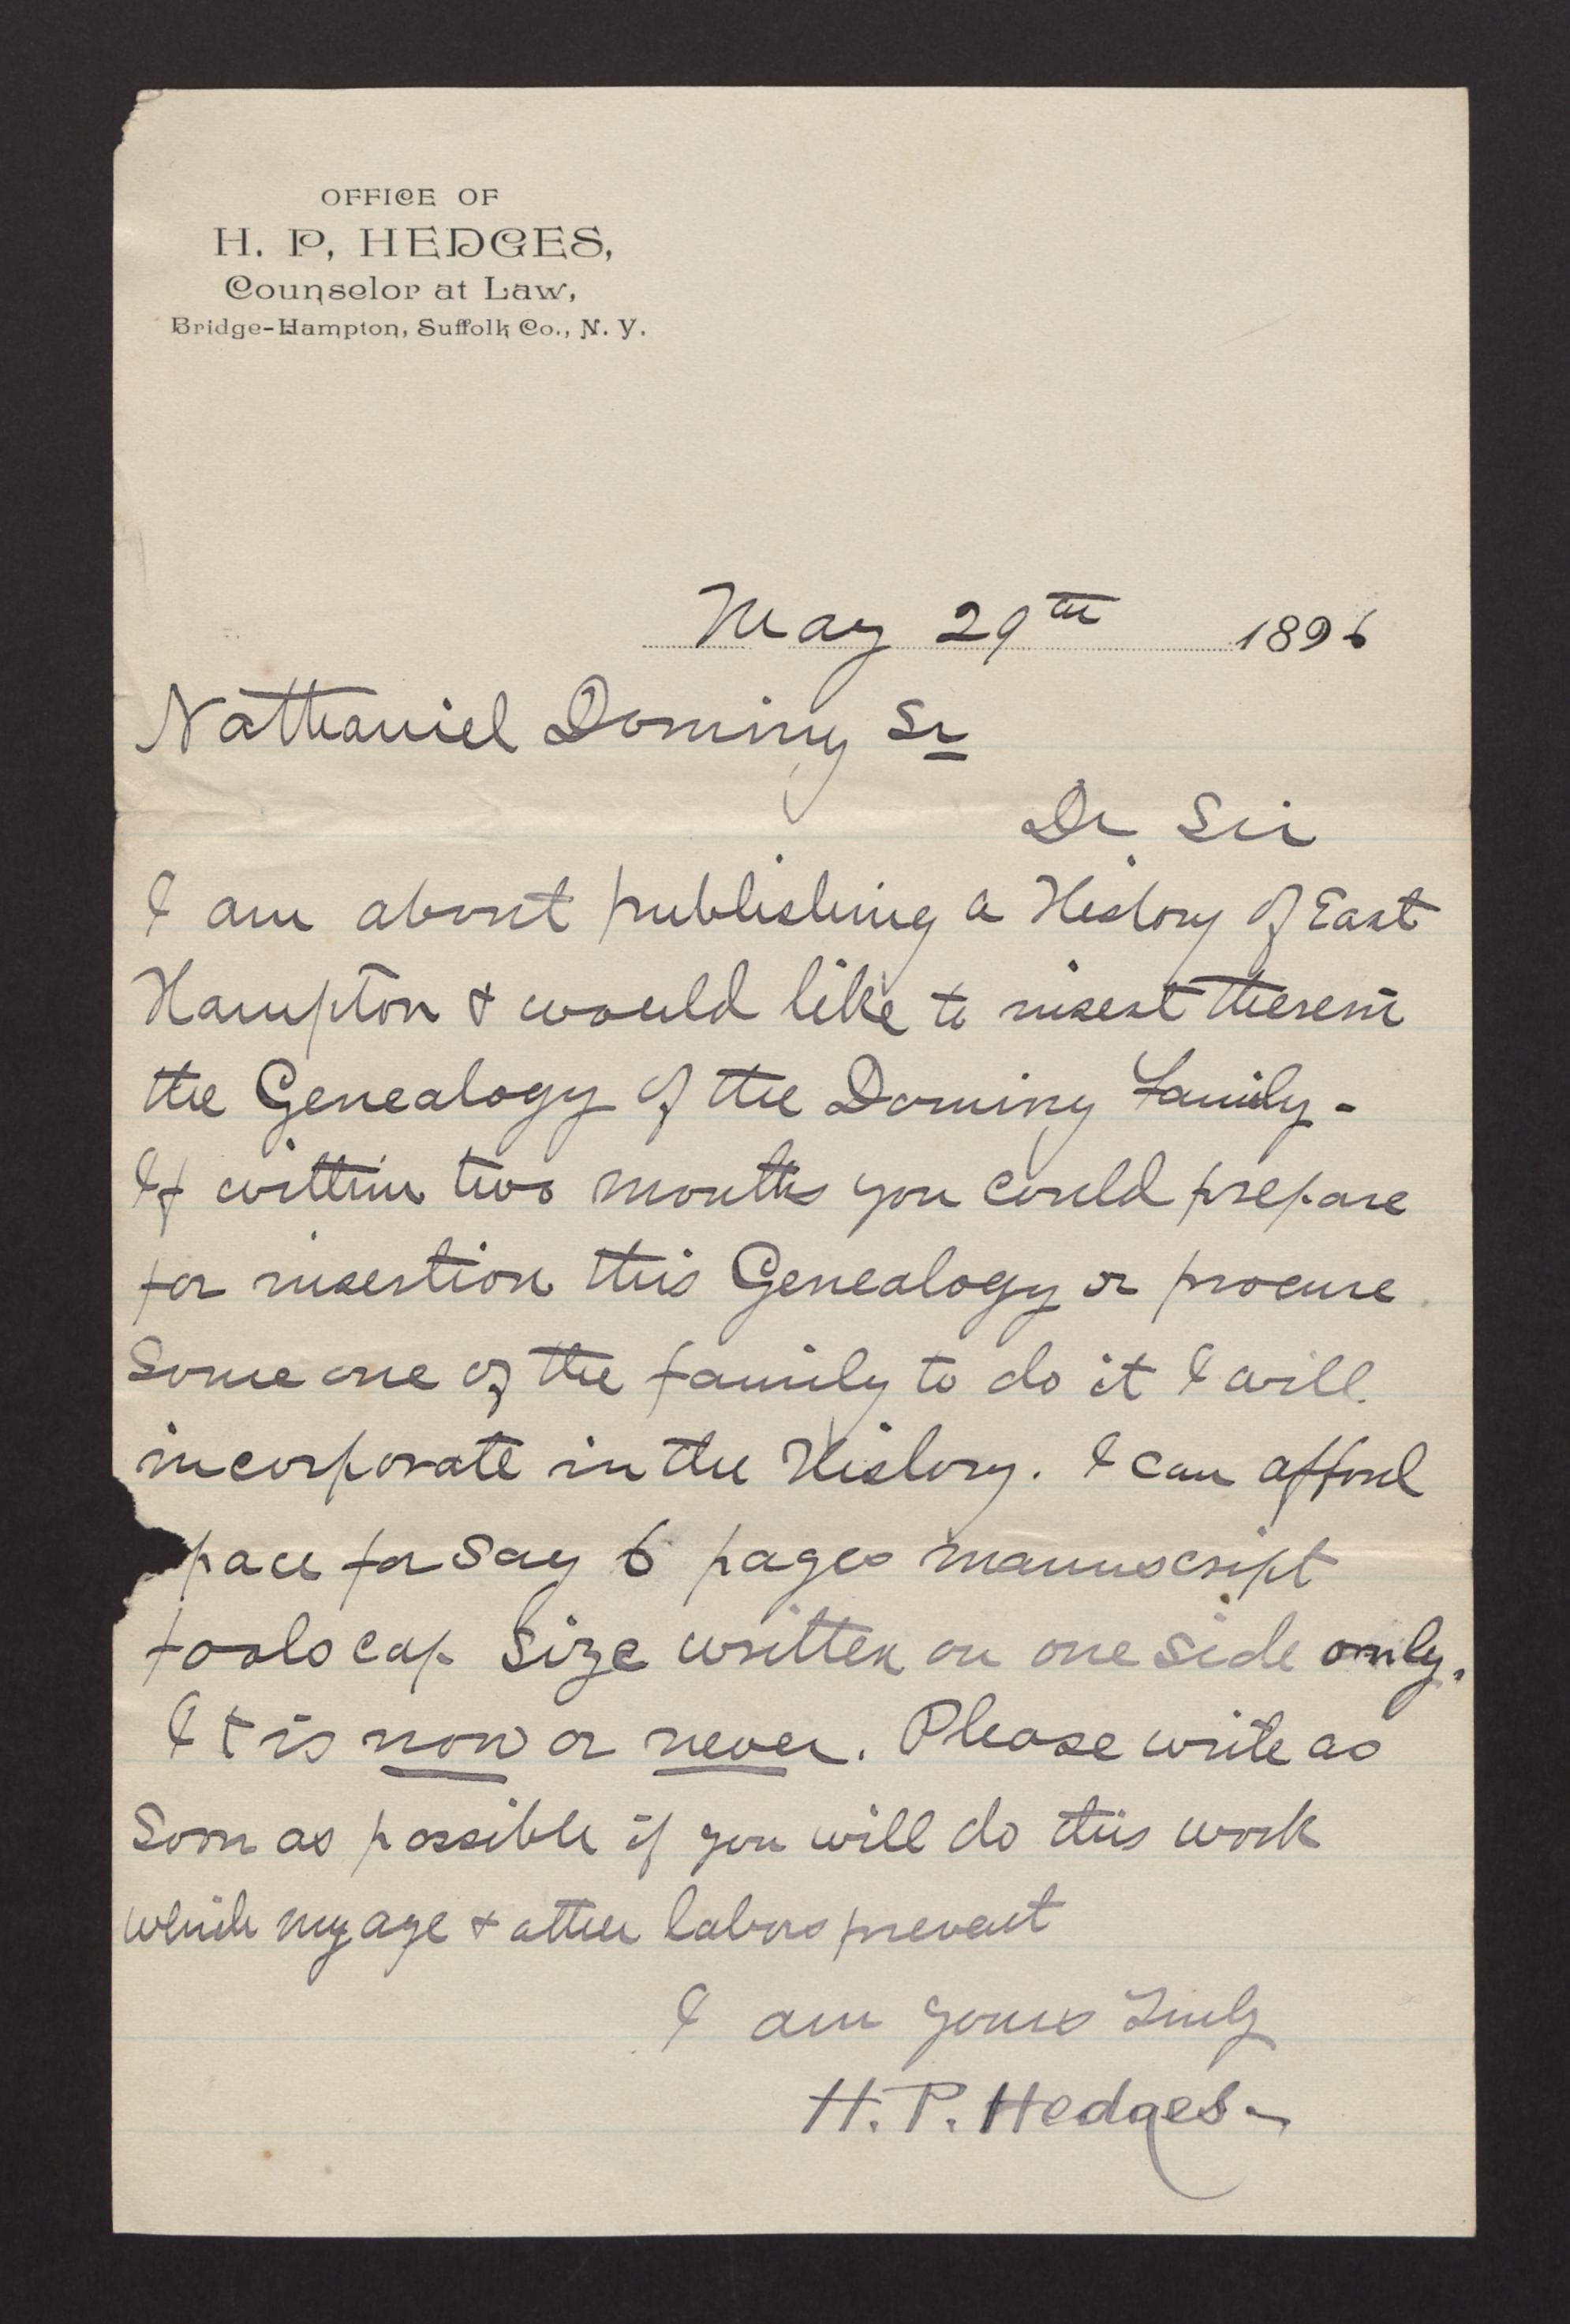 OFFICE OF
H. P. HEDGES,
Counselor at Law,
Bridge-Hampton, Suffolk Co., N. Y.
May 29th 1896
Nathaniel Dominy Sr
Dr Sir
I am about publishing a History of East
Hampton & would like to insert therein
the Genealogy of the Dominy family -
If within two months you could prepare
for insertion this Genealogy or procure
Some one of the family to do it I will
incorporate in the History. I can afford
pace for say 6 pages manuscript
foolscap Size written on one side only.
It is now or never. Please write as
Soon as possible if you will do this work
which my age & other labors prevent
I am yours Truly
H. P. Hedges -